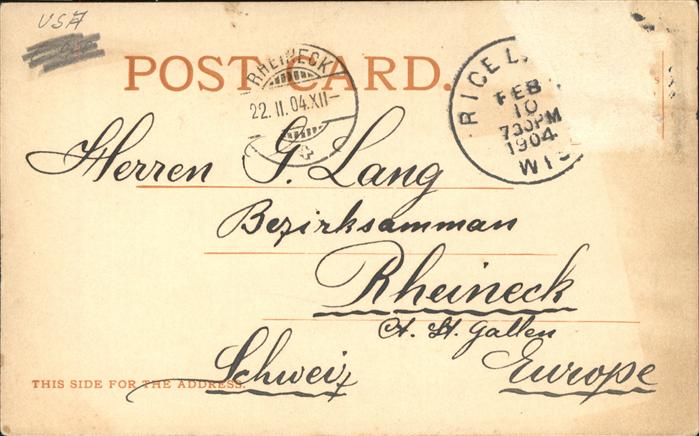 USA
POST CARD.
RHEINECK
22.II.04.XII-
RICE L
FEB
10
730PM
1904
WIS
Herren G. Lang
Bezirksamman
Rheineck
Ct. St. Gallen
Schweiz Europe
THIS SIDE FOR THE ADDRESS.